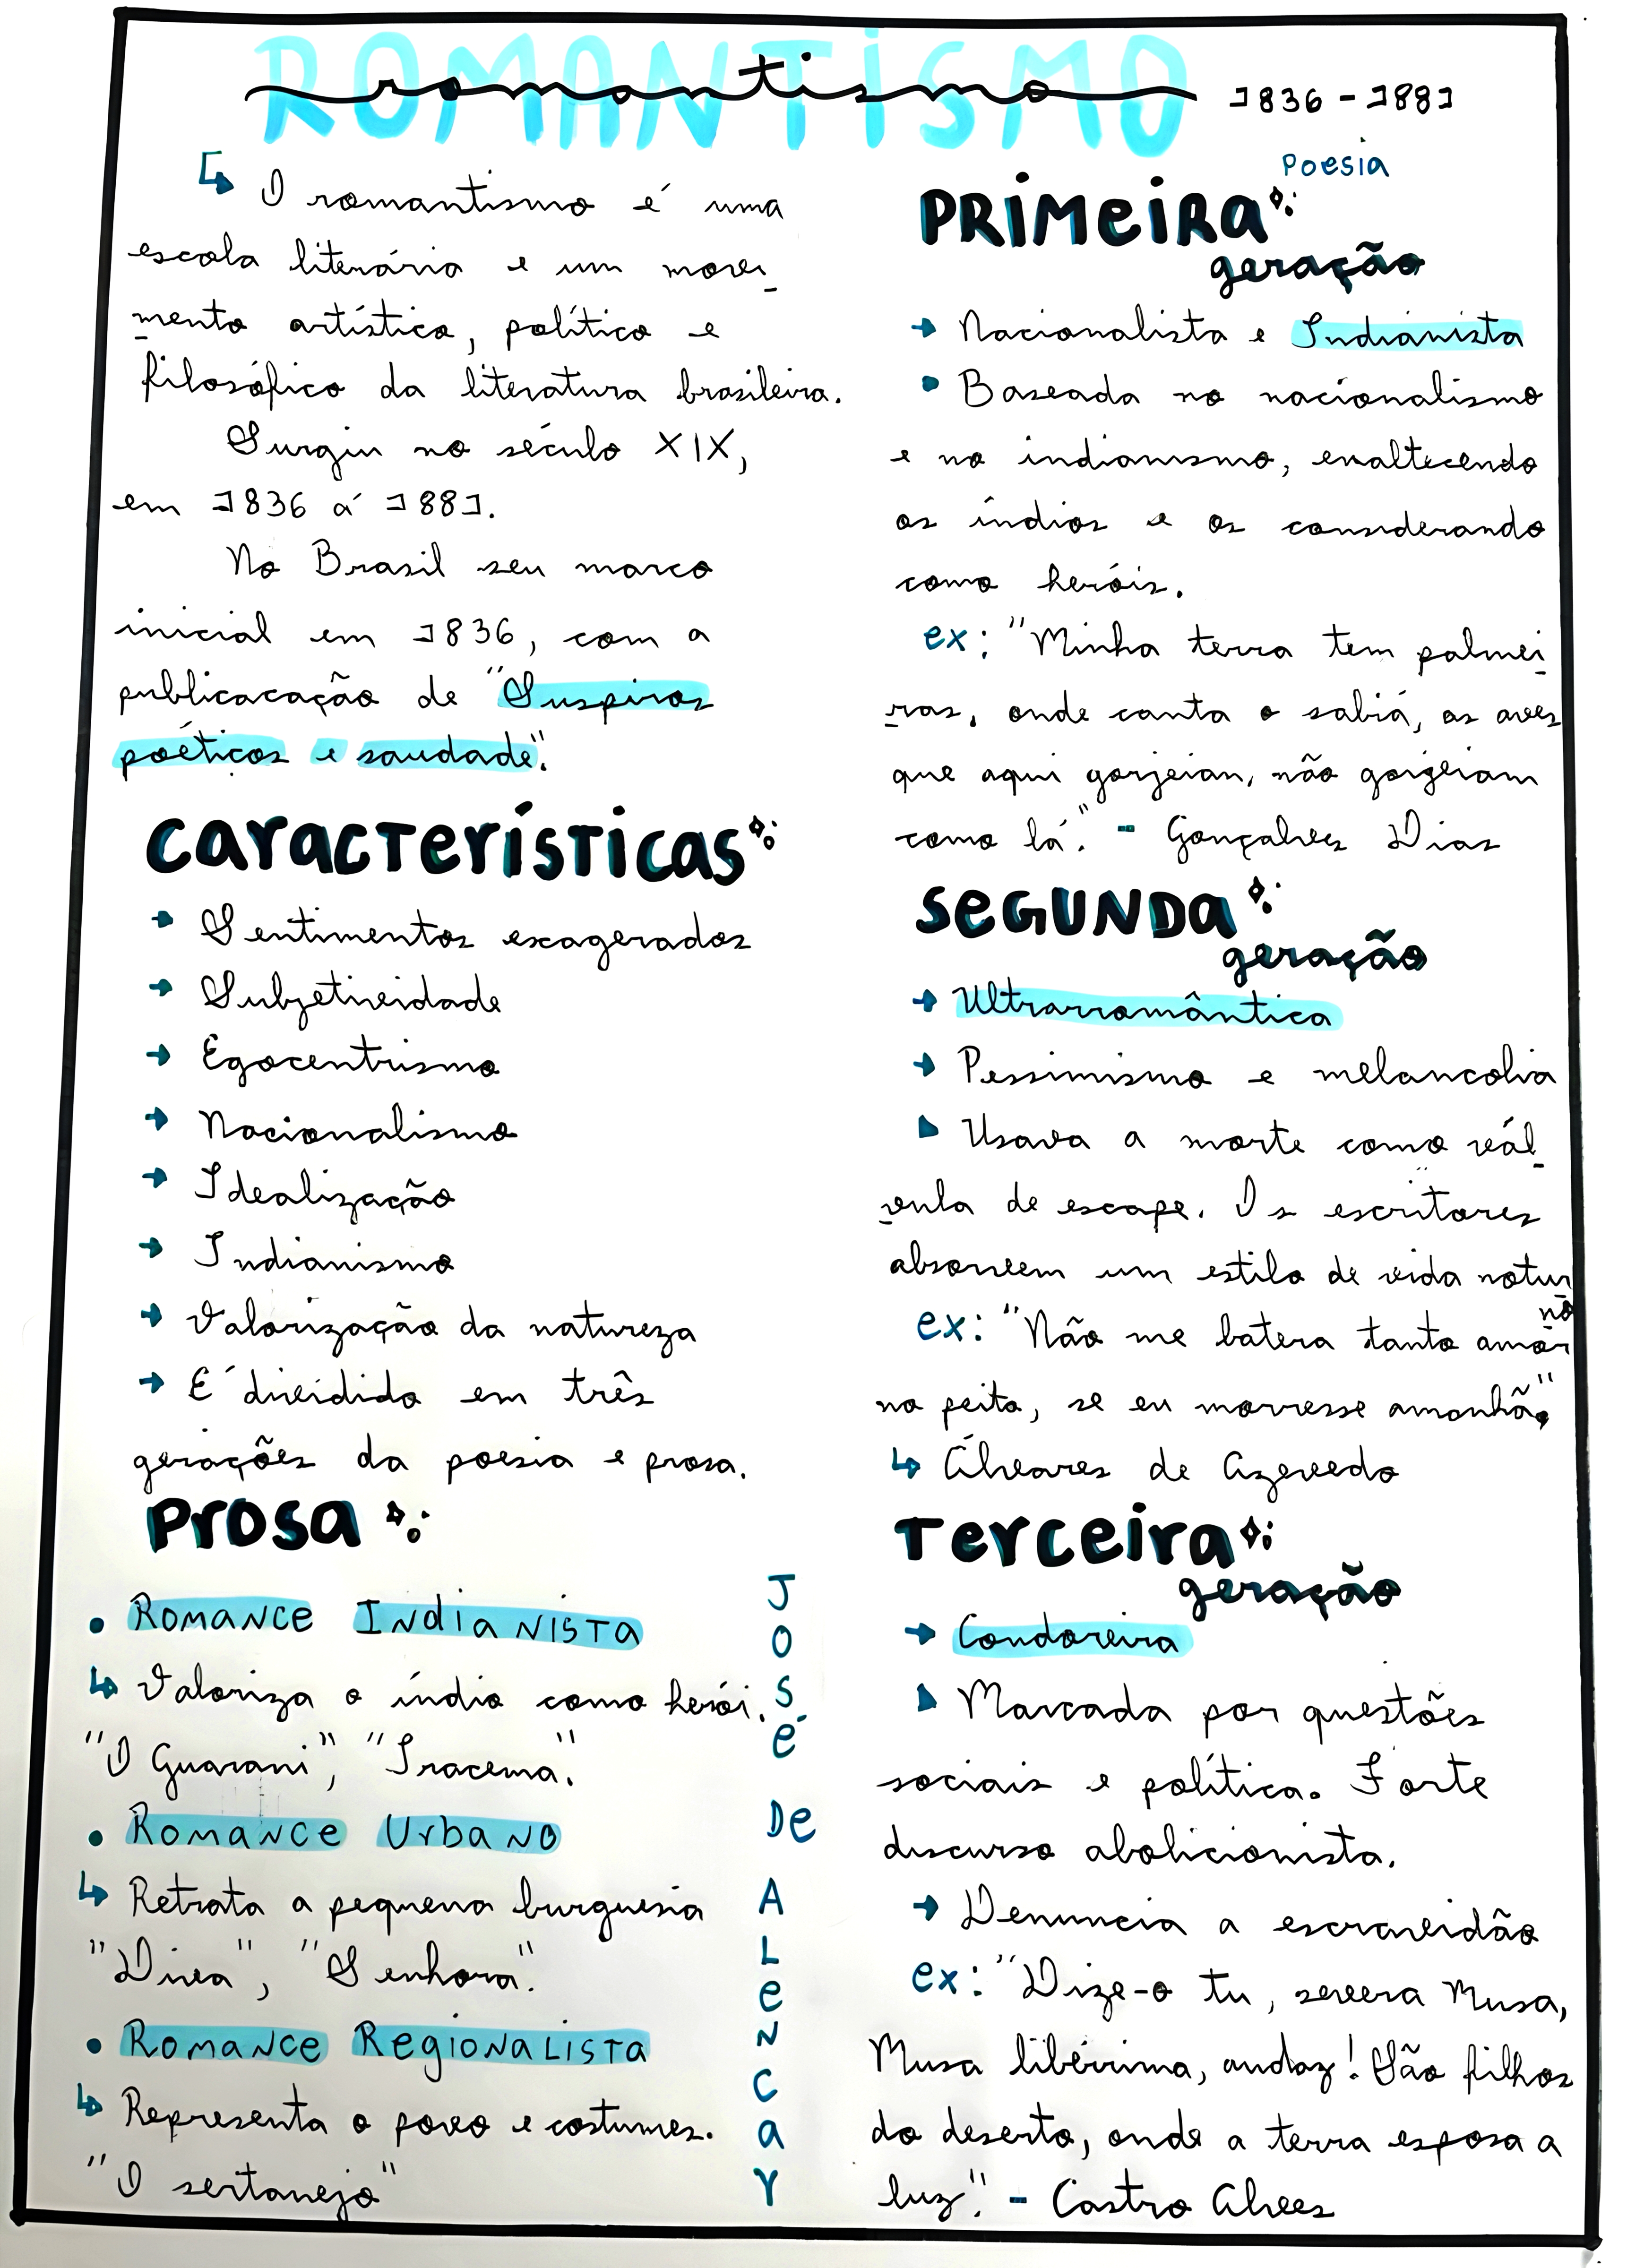 ROMANTISMO
romantismo 1836 - 1881
↳ O romantismo é uma
escola literária e um movi
mento artístico, político e
filosófico da literatura brasileira.
Surgiu no século XIX,
em 1836 á 1881.
No Brasil seu marco
inicial em 1836, com a
publicacação de "Suspiros
poéticos e saudade".
Características
→ Sentimentos exagerados
→ Subjetividade
→ Egocentrismo
→ Nacionalismo
→ Idealização
→ Indianismo
→ Valorização da natureza
→ É dividido em três
gerações da poesia e prosa.
Prosa
• Romance Indianista
↳ Valoriza o índio como herói.
"O Guarani", "Iracema".
• Romance Urbano
↳ Retrata a pequena burguesia
"Diva", "Senhora".
• Romance Regionalista
↳ Representa o povo e costumes.
"O sertanejo"
José
De
Alencar
Poesia
Primeira
geração
→ Nacionalista e Indianista
• Baseada no nacionalismo
e no indianismo, enaltecendo
os índios e os considerando
como heróis.
ex: "Minha terra tem palmei
ras, onde canta o sabiá, as aves
que aqui gorjeian, não gorgeiam
como lá." - Gonçalves Dias
Segunda
geração
→ Ultrarromântica
→ Pessimismo e melancolia
Usava a morte como vál
vula de escape. Os escritores
absorvem um estilo de vida notur
no
ex: "Não me batera tanto amor
no peito, se eu morresse amanhã."
↳ Álvares de Azevedo
Terceira
geração
→ Condoreira
Marcada por questões
sociais e política. Forte
discurso abolicionista.
→ Denuncia a escravidão
ex: "Dize-o tu, severa Musa,
Musa libérrima, audaz! São filhos
do deserto, onde a terra esposa a
luz". - Castro Alves